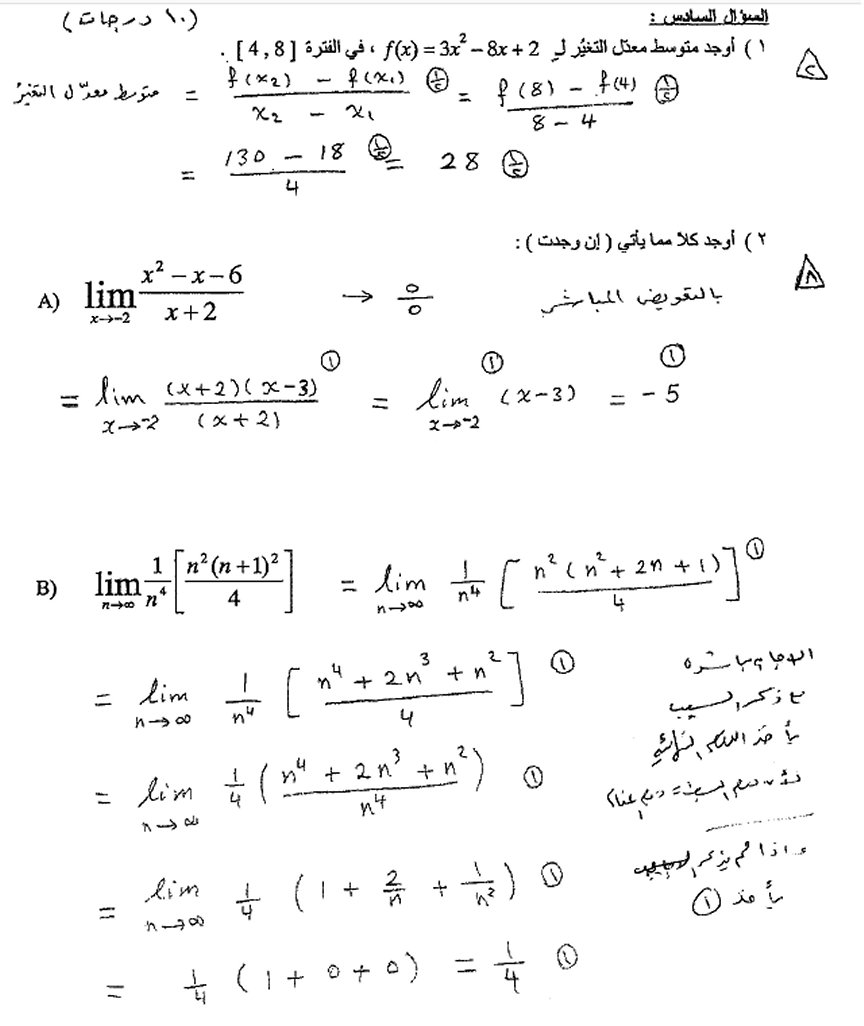 السؤال السادس : (١٠ درجات)
١ ) أوجد متوسط معدّل التغيُّر لـِ f(x) = 3x² − 8x + 2 ، في الفترة [ 4 , 8 ] .
متوسط معدّل التغيُّر = (f(x₂) − f(x₁)) / (x₂ − x₁) = (f(8) − f(4)) / (8 − 4)
= (130 − 18) / 4 = 28
٢ ) أوجد كلاً مما يأتي ( إن وجدت ) :
A) lim x→−2 (x² − x − 6) / (x + 2) → 0/0 بالتعويض المباشر
= lim x→−2 (x+2)(x−3) / (x+2) ① = lim x→−2 (x−3) ① = −5 ①
B) lim n→∞ 1/n⁴ [n²(n+1)² / 4] = lim n→∞ 1/n⁴ [n²(n² + 2n + 1) / 4] ①
= lim n→∞ 1/n⁴ [(n⁴ + 2n³ + n²) / 4] ①
= lim n→∞ 1/4 ((n⁴ + 2n³ + n²) / n⁴) ①
= lim n→∞ 1/4 (1 + 2/n + 1/n²) ①
= 1/4 (1 + 0 + 0) = 1/4 ①
مع ذكر السبب
واذا لم يذكر
يأخذ ①